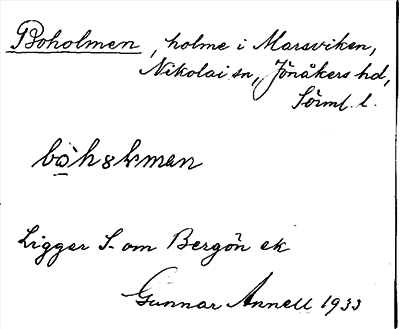 Boholmen, holme i Marsviken,
Nikolai sn, Jönåkers hd,
Sörml. l.
Ligger S. om Bergön ek
Gunnar Annell 1933